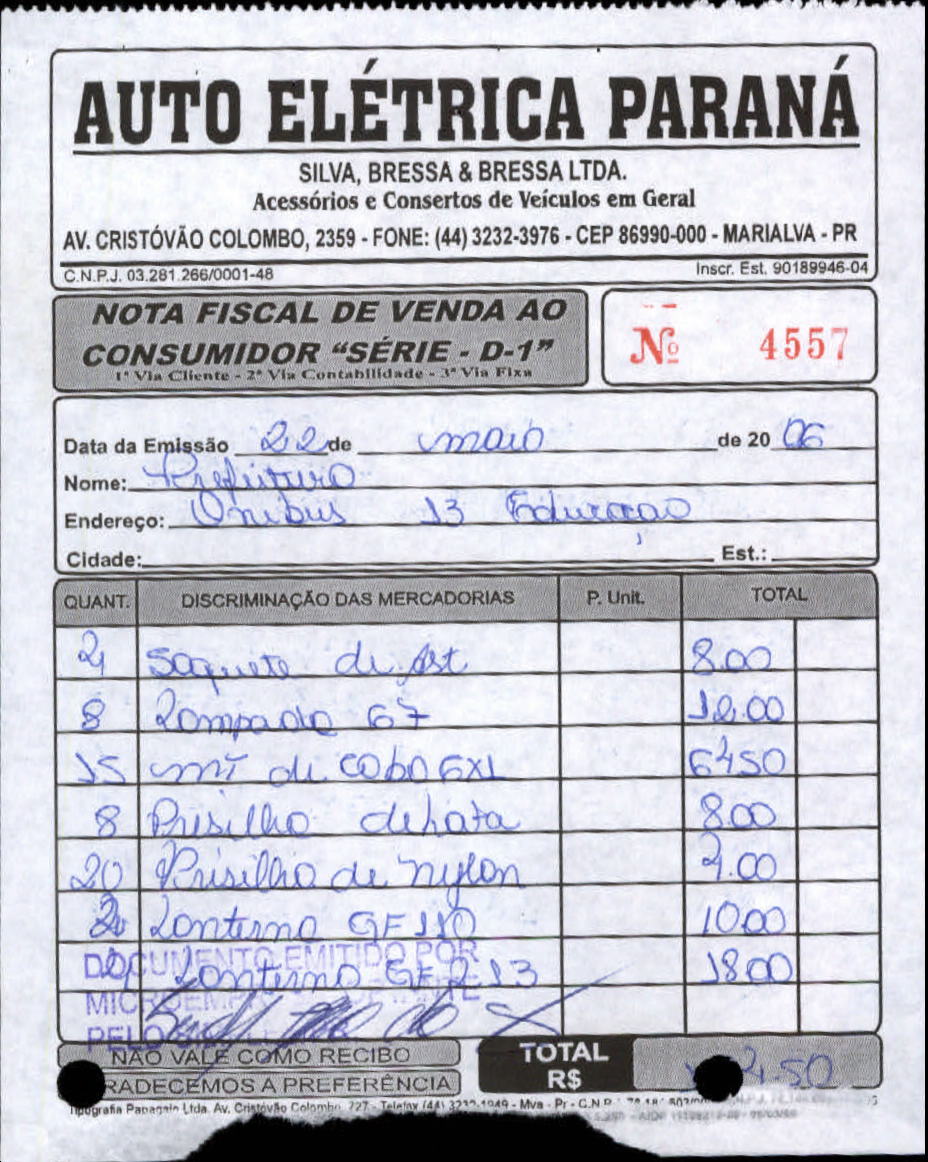 AUTO ELÉTRICA PARANÁ
SILVA, BRESSA & BRESSA LTDA.
Acessórios e Consertos de Veículos em Geral
AV. CRISTÓVÃO COLOMBO, 2359 - FONE: (44) 3232-3976 - CEP 86990-000 - MARIALVA - PR
C.N.P.J. 03.281.266/0001-48 Inscr. Est. 90189946-04
NOTA FISCAL DE VENDA AO
CONSUMIDOR "SÉRIE - D-1"
1ª Via Cliente - 2ª Via Contabilidade - 3ª Via Fixa
Nº 4557
Data da Emissão 22 de maio de 20 06
Nome: Prefeitura
Endereço: Onibus 13 Educação
Cidade: Est.:
QUANT. DISCRIMINAÇÃO DAS MERCADORIAS P. Unit. TOTAL
2 Soquete de 8.00
8 Lampada 67 12.00
15 mt de cabo 6X1 6450
8 Presilha de lata 8.00
20 Presilha de nylon 2.00
2 Lanterna GF 110 10.00
Lanterna GF 213 18.00
DOCUMENTO EMITIDO POR
PELO
NÃO VALE COMO RECIBO
RADECEMOS A PREFERÊNCIA
TOTAL
R$ 2.50
Tipografia Papagaio Ltda. Av. Cristóvão Colombo, 727 - Telefax (44) 3232-1949 - Mva - Pr - C.N.P.